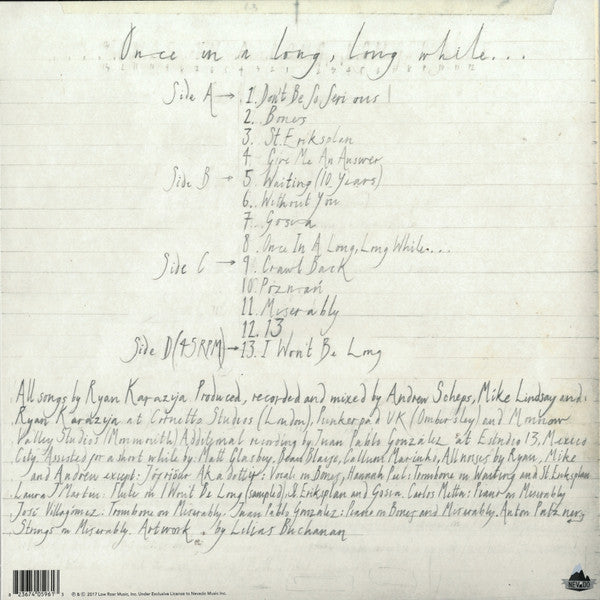 Once in a long, long while...
Side A → 1. Don't Be So Serious
2. Bones
3. St. Eriksplan
4. Give Me An Answer
Side B → 5. Waiting (10 Years)
6. Without You
7. Gosia
8. Once In A Long, Long While...
Side C → 9. Crawl Back
10. Poznań
11. Miserably
12. 13
Side D (45 RPM) → 13. I Won't Be Long
All songs by Ryan Karazija Produced, recorded and mixed by Andrew Scheps, Mike Lindsay and
Ryan Karazija at Cornetto Studios (London), Punkerpad UK (Ombersley) and Monnow
Valley Studios (Monmouth) Additional recording by Juan Pablo González at Estudio 13, Mexico
City. Assisted for a short while by: Matt Glasbey, Callum Marinho, All noises by Ryan, Mike
and Andrew except: AKA Vocal on Bones, Hannah Trombone on Waiting and St. Eriksplan
Laura J Martin: Flute on I Won't Be Long (sampled), St Eriksplan and Gosia. Carlos Piano on Miserably
José Villagómez: Trombone on Miserably. Juan Pablo González: Piano on Bones and Miserably. Anton Patzner
Strings on Miserably. Artwork by Lilias Buchanan
8 23674 05961 3
℗ & © 2017 Low Roar Music, Inc. Under Exclusive License to Nevado Music Inc.
NEVADO